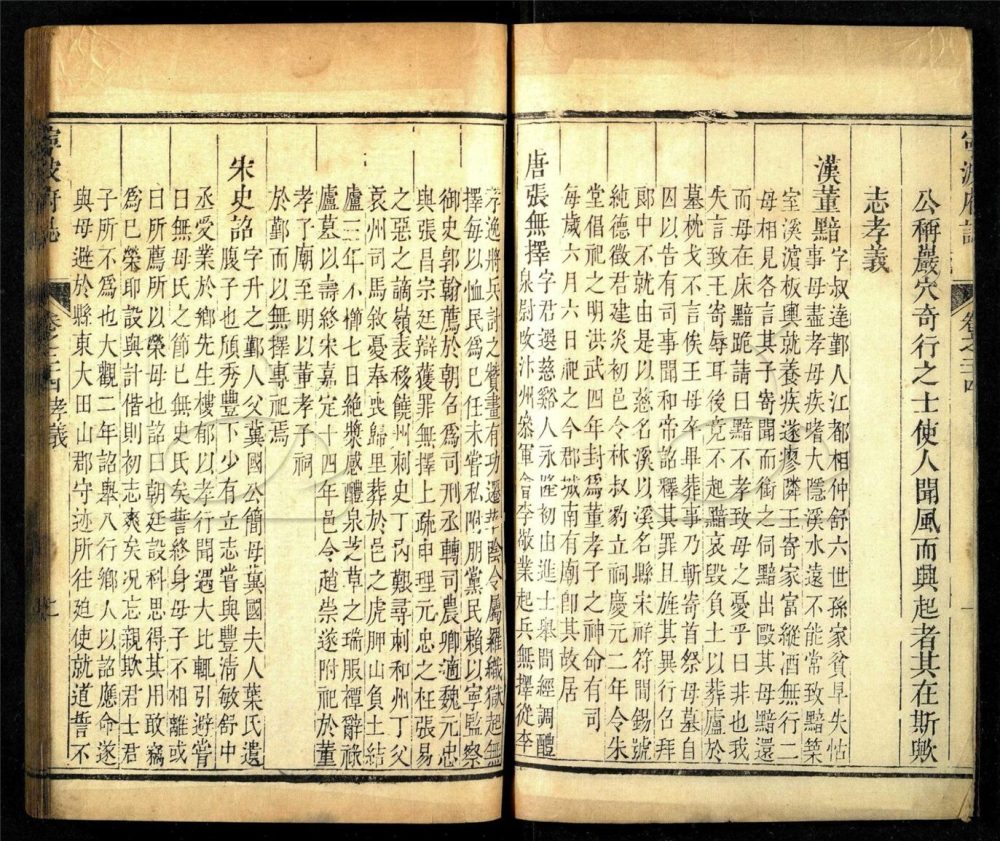 公稱巖穴奇行之士使人聞風而興起者其在斯歟
志孝義
漢董黯字叔達鄞人江都相仲舒六世孫家貧早失怙
事母盡孝母疾嗜大隱溪水遠不能常致黯築
室溪濵板輿就養疾遂瘳隣王寄家富縱酒無行二
母相見各言其子寄聞而銜之伺黯出毆其母黯還
而母在床黯跪請曰黯不孝致母之憂乎曰非也我
失言致王寄辱耳後竟不起黯哀毀負土以葬廬於
墓枕戈不言俟王母卒畢葬事乃斬寄首祭母墓自
囚以告有司事聞和帝詔釋其罪且旌其異行召拜
郎中不就由是以慈名溪以溪名縣宋祥符間錫號
純德徵君建炎初邑令林叔豹立祠慶元二年令朱
堂倡祀之明洪武四年封爲董孝子之神命有司
每歲六月六日祀之今郡城南有廟卽其故居
唐張無擇字君選慈谿人永隆初由進士舉問經調醴
泉尉改汴州叅軍會李敬業起兵無擇從李
孝逸將兵討之賛畫有功還
令屬羅織獄起無
擇每以恤民爲已任未嘗私附朋黨民賴以寧監察
御史郭翰薦於朝召爲司刑丞轉司農卿適魏元忠
與張昌宗廷辯獲罪無擇上疏申理元忠之枉張易
之惡之謫嶺表移饒州刺史丁內艱尋刺和州丁父
袁州司馬敘憂奉喪歸里葬於邑之虎胛山負土結
廬三年不櫛七日絶漿感醴泉芝草之瑞服禫辭祿
廬墓以壽終宋嘉定十四年邑令趙崇遂附祀於董
孝子廟至明以董孝子祠
於鄞而以無擇專祀焉
宋史詔字升之鄞人父冀國公簡母冀國夫人葉氏遺
腹子也頎秀豐下少有立志嘗與豐淸敏舒中
丞受業於鄉先生樓郁以孝行聞遇大比輒引避嘗
曰無母氏之節已無史氏矣誓終身母子不相離或
曰所薦所以榮母也詔曰朝廷設科思得其用敢竊
爲已榮卽設與計偕則初志爽矣况忘親欺君士君
子所不爲也大觀二年詔舉八行鄉人以詔應命遂
與母避於縣東大田山郡守迹所往廹使就道誓不
卷之二十四
孝義